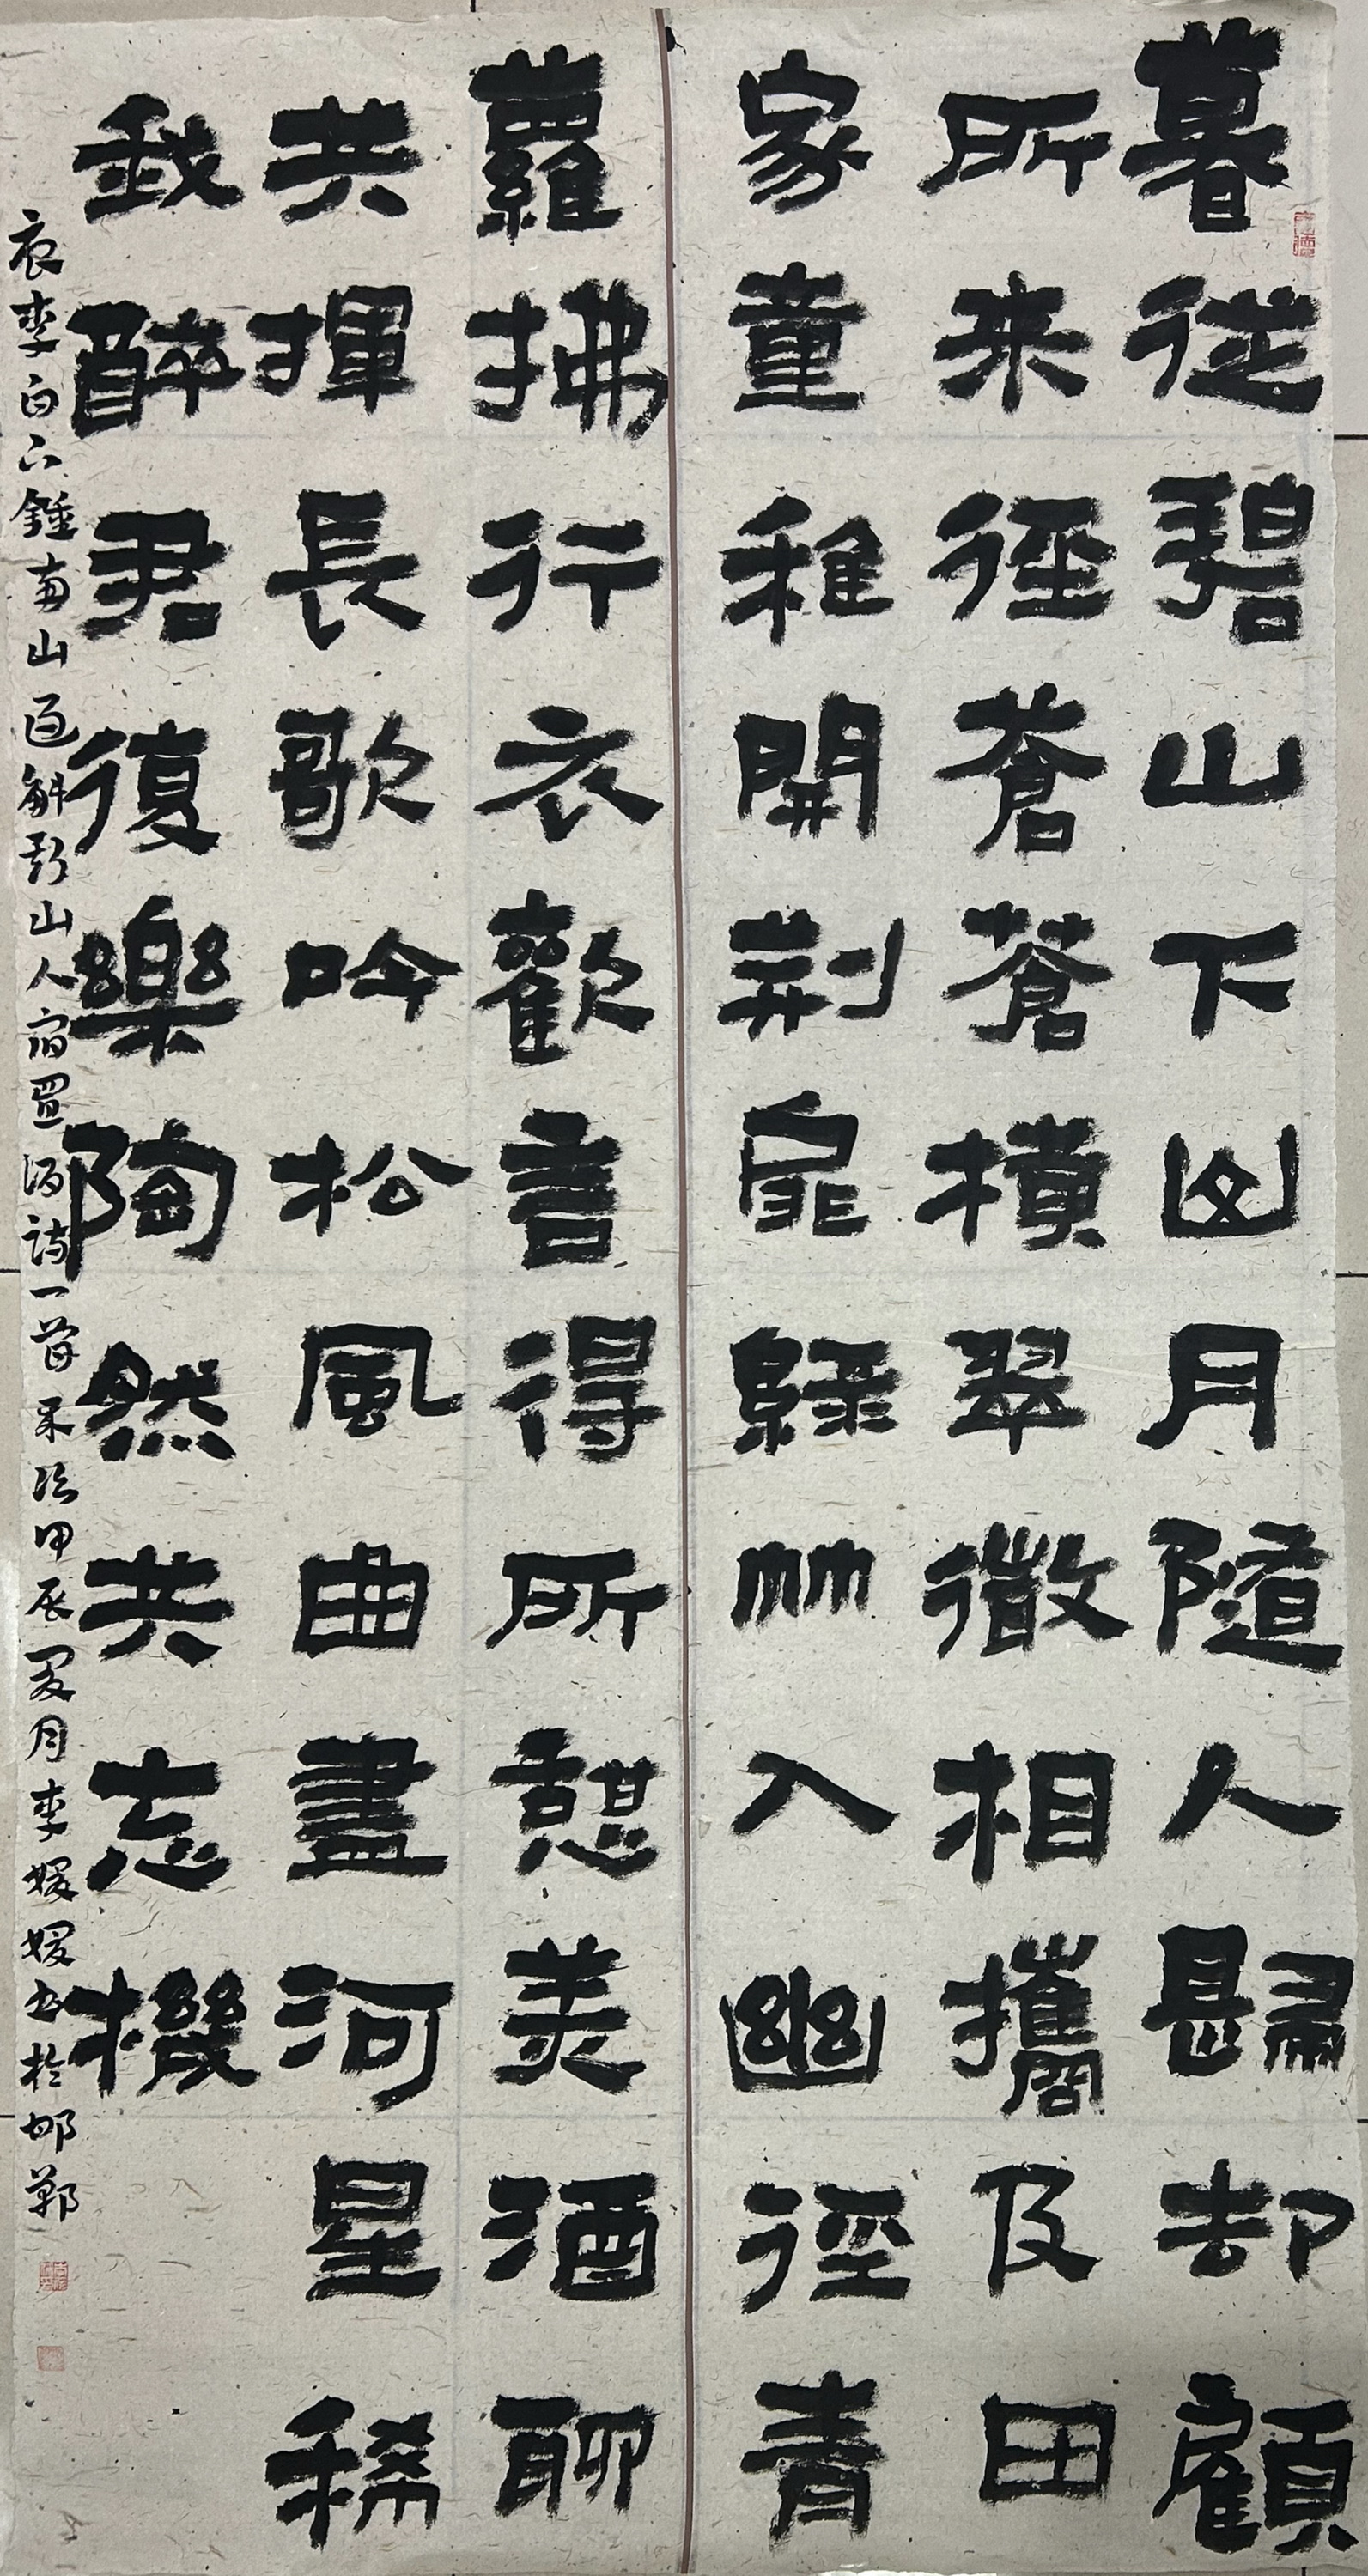 暮從碧山下山月隨人歸却顧
所来徑蒼蒼橫翠微相攜及田
家童稚開荆扉綠竹入幽徑青
蘿拂行衣歡言得所憩美酒聊
共揮長歌吟松風曲盡河星稀
我醉君復樂陶然共忘機
李白下鍾南山過斛斯山人宿置酒詩一首甲辰夏月李媛媛書於邯鄲